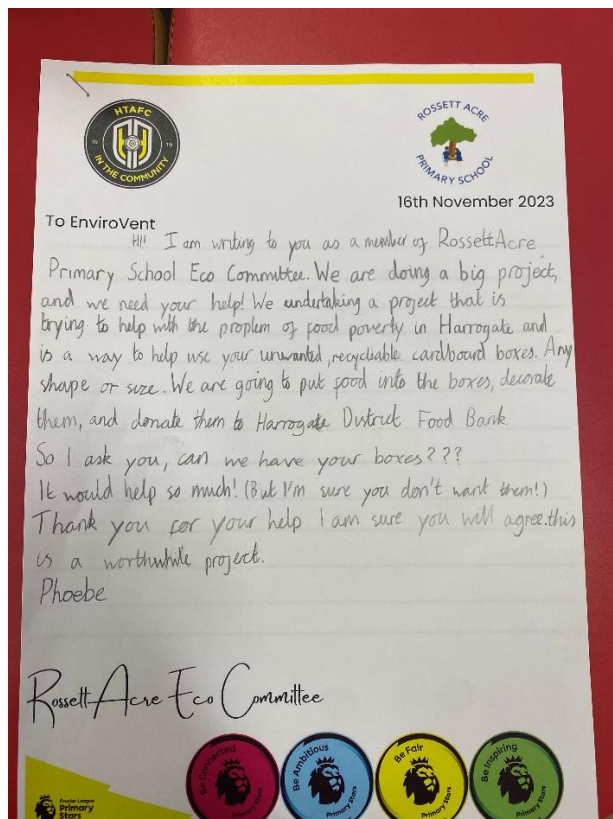 HTAFC
19 19
IN THE COMMUNITY
ROSSETT ACRE
PRIMARY SCHOOL
16th November 2023
To EnviroVent
Hi! I am writing to you as a member of RossettAcre
Primary School Eco Committee. We are doing a big project,
and we need your help! We undertaking a project that is
trying to help with the proplem of food poverty in Harrogate and
is a way to help use your unwanted, recycleable cardboard boxes. Any
shape or size. We are going to put food into the boxes, decorate
them, and donate them to Harrogate District Food Bank.
So I ask you, can we have your boxes???
It would help so much! (But I'm sure you don't want them!)
Thank you for your help I am sure you will agree.this
is a worthwhile project.
Phoebe
Rossett Acre Eco Committee
Be Connected
Be Ambitious
Be Fair
Be Inspiring
Primary Stars
Primary Stars
Primary Stars
Primary Stars
Premier League
Primary
Stars